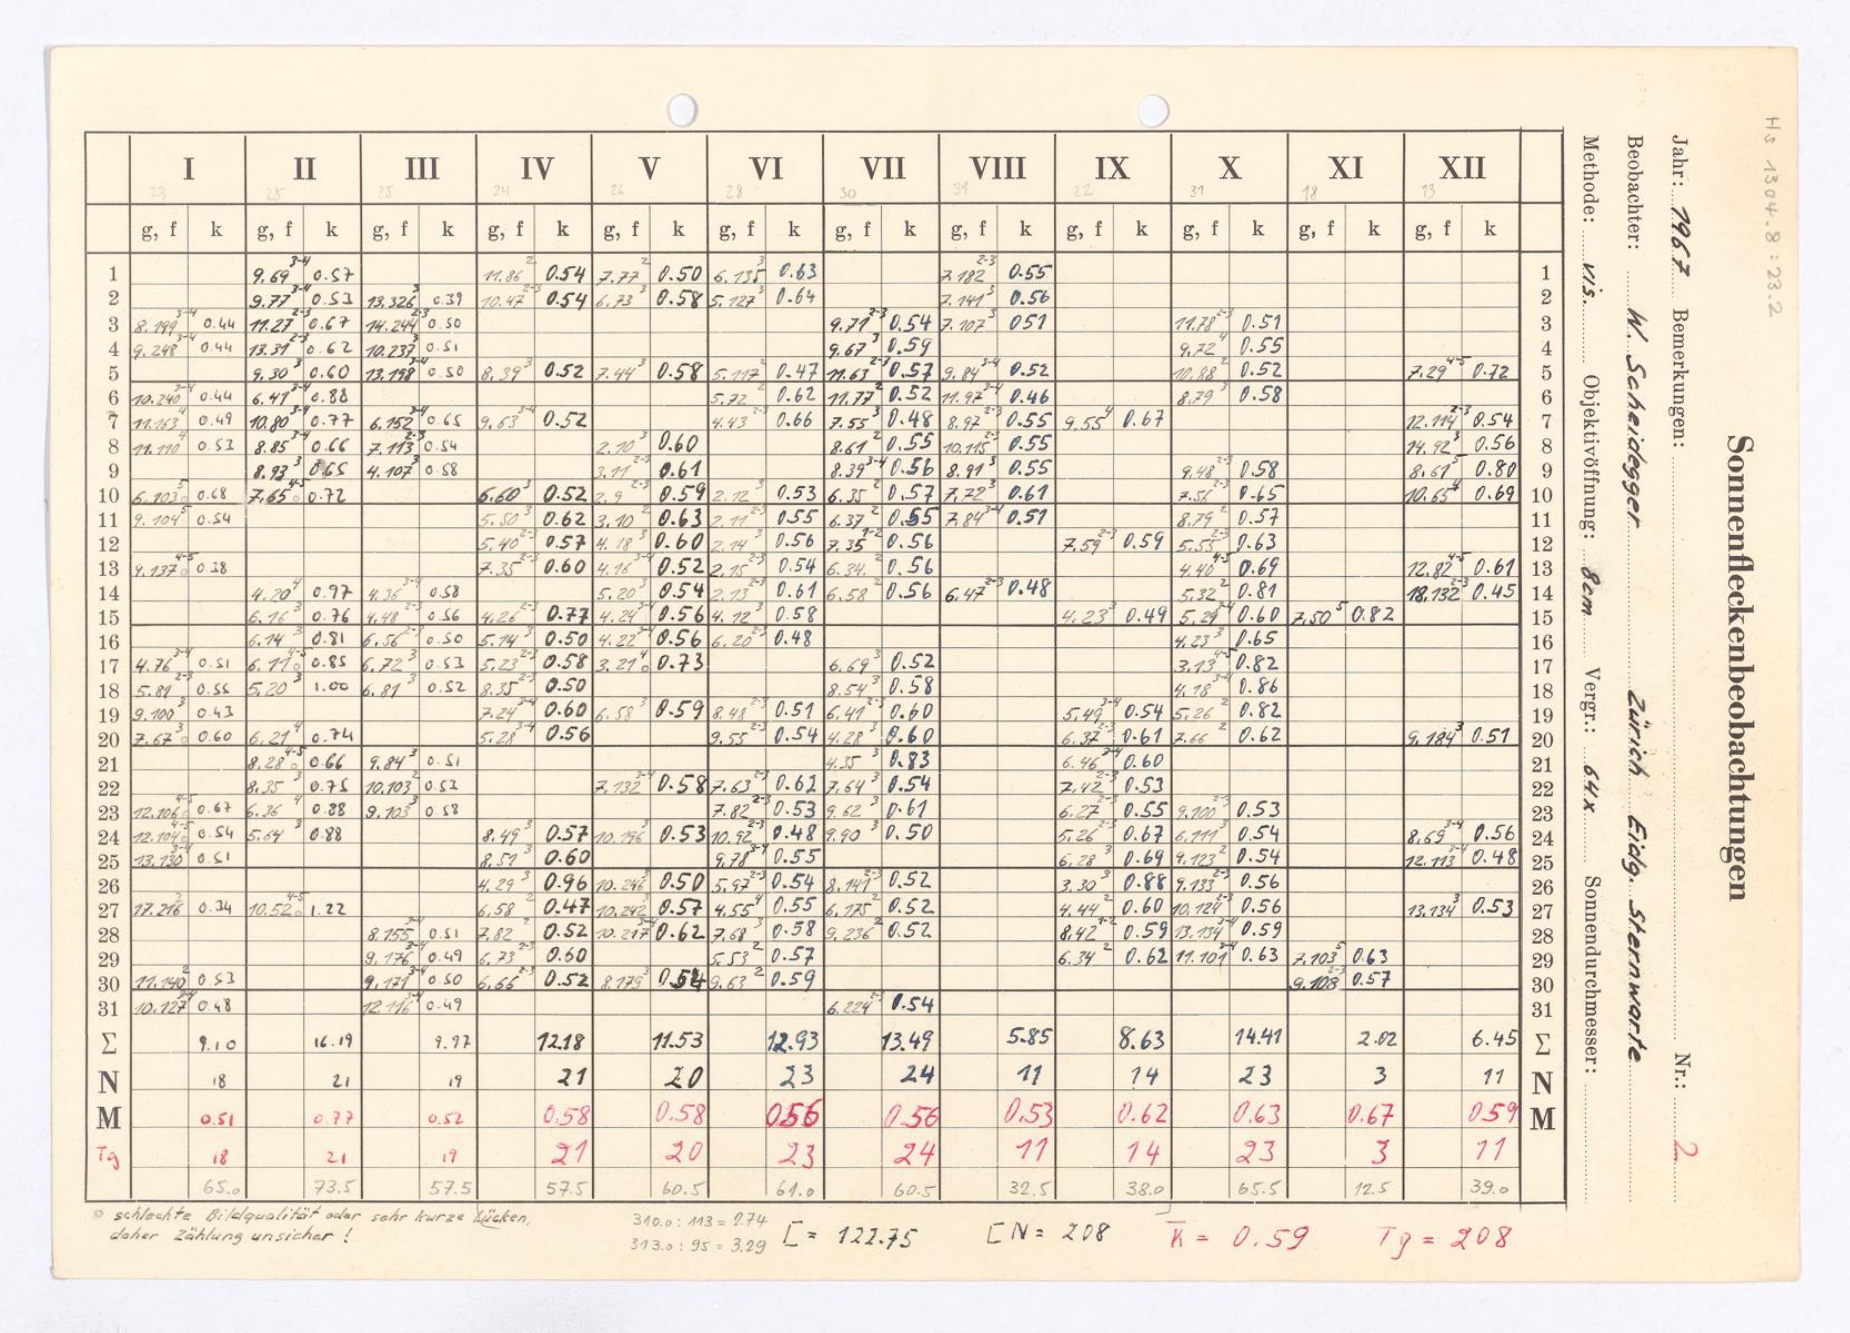 Hs 1304.8:23.2
Sonnenfleckenbeobachtungen
Jahr: 1967 Bemerkungen: Nr.: 2
Beobachter: W. Scheidegger Zürich Eidg. Sternwarte
Methode: vis. Objektivöffnung: 8cm Vergr.: 64x Sonnendurchmesser:
I II III IV V VI VII VIII IX X XI XII
23 25 25 24 26 28 30 31 22 31 18 13
g, f k g, f k g, f k g, f k g, f k g, f k g, f k g, f k g, f k g, f k g, f k g, f k
1 9.69 3-4 0.57 11.86 2 0.54 7.77 2 0.50 6.135 3 0.63 7.182 2-3 0.55 1
2 9.77 3-4 0.53 13.326 3 0.39 10.47 2-3 0.54 6.73 3 0.58 5.127 3 0.64 7.141 3 0.56 2
3 8.199 3-4 0.44 11.27 2-3 0.67 14.244 2-3 0.50 9.71 2-3 0.54 7.107 3 051 11.78 2-3 0.51 3
4 9.248 3-4 0.44 13.31 2-3 0.62 10.237 3 0.51 9.67 3 0.59 9.72 4 0.55 4
5 9.30 3 0.60 13.198 3-4 0.50 8.39 3 0.52 7.44 3 0.58 5.117 2 0.47 11.63 2-3 0.57 9.84 3-4 0.52 10.88 2 0.52 7.29 4-5 0.72 5
6 10.240 3-4 0.44 6.41 3-4 0.88 5.72 2 0.62 11.77 2 0.52 11.97 3-4 0.46 8.79 3 0.58 6
7 11.163 4 0.49 10.80 3-4 0.77 6.152 3-4 0.65 9.63 3-4 0.52 4.43 2-3 0.66 7.55 3 0.48 8.97 2-3 0.55 9.55 4 0.67 12.114 2-3 0.54 7
8 11.110 4 0.53 8.85 3-4 0.66 7.113 2-3 0.54 2.10 3 0.60 8.61 2 0.55 10.115 2-3 0.55 14.92 3 0.56 8
9 8.93 3 0.65 4.107 3 0.58 3.11 2-3 0.61 8.39 3-4 0.56 8.91 3 0.55 9.48 2-3 0.58 8.61 3 0.80 9
10 6.103 5 0.68 7.65 4-5 0.72 6.60 3 0.52 2.9 2-3 0.59 2.12 3 0.53 6.35 2 0.57 7.72 3 0.61 7.56 2-3 0.65 10.65 4 0.69 10
11 9.104 5 0.54 5.50 3 0.62 3.10 2 0.63 2.11 2-3 0.55 6.37 2 0.55 7.84 3-4 0.51 8.79 2 0.57 11
12 5.40 2-3 0.57 4.18 3 0.60 2.14 3 0.56 7.35 1-2 0.56 7.59 2-3 0.59 5.55 2-3 0.63 12
13 9.137 4-5 0.38 7.35 2-3 0.60 4.16 3-4 0.52 2.15 2-3 0.54 6.34 2 0.56 4.40 4-5 0.69 12.82 4-5 0.61 13
14 4.20 4 0.97 4.36 3-4 0.58 5.20 3 0.54 2.13 2-3 0.61 6.58 2 0.56 6.47 2-3 0.48 5.32 2 0.81 18.132 2-3 0.45 14
15 6.16 3 0.76 4.48 2-3 0.56 4.26 2-3 0.77 4.24 3-4 0.56 4.12 3 0.58 4.23 3 0.49 5.29 3-4 0.60 7.50 5 0.82 15
16 6.14 3 0.81 6.56 2-3 0.50 5.14 3 0.50 4.22 3-4 0.56 6.20 2-3 0.48 4.23 3 0.65 16
17 4.76 3-4 0.51 6.11 4-5 0.85 6.72 3 0.53 5.23 2-3 0.58 3.21 4 0.73 6.69 3 0.52 3.13 4-5 0.82 17
18 5.81 2-3 0.55 5.20 3 1.00 6.81 3 0.52 8.35 2-3 0.50 8.54 3 0.58 4.18 3-4 0.86 18
19 9.100 3 0.43 7.24 3-4 0.60 6.58 3 0.59 8.48 2-3 0.51 6.41 2-3 0.60 5.49 3-4 0.54 5.26 2 0.82 19
20 7.67 3 0.60 6.21 4 0.74 5.28 3-4 0.56 9.55 2-3 0.54 4.28 3 0.60 6.37 2-3 0.61 7.66 2 0.62 9.184 3 0.51 20
21 8.28 4-5 0.66 9.84 3 0.51 4.35 3 0.83 6.46 3-4 0.60 21
22 8.35 3 0.75 10.103 2 0.52 7.132 3-4 0.58 7.63 2-3 0.62 7.64 3 0.54 7.42 2-3 0.53 22
23 12.106 4-5 0.67 6.36 4 0.88 9.103 3 0.58 7.82 2-3 0.53 9.62 3 0.61 6.27 2-3 0.55 9.100 2-3 0.53 23
24 12.104 4-5 0.54 5.64 3 0.88 8.49 3 0.57 10.196 3 0.53 10.92 2-3 0.48 9.90 3 0.50 5.26 2-3 0.67 6.111 3 0.54 8.69 3-4 0.56 24
25 13.130 3-4 0.51 8.51 3 0.60 9.78 3-4 0.55 6.28 3 0.69 9.123 2 0.54 12.113 3-4 0.48 25
26 4.29 3 0.96 10.246 3 0.50 5.97 2-3 0.54 8.141 2-3 0.52 3.30 3 0.88 9.133 2-3 0.56 26
27 17.216 2 0.34 10.52 4-5 1.22 6.58 2 0.47 10.242 3 0.57 4.55 4 0.55 6.175 2 0.52 4.44 2 0.60 10.124 2-3 0.56 13.134 3 0.53 27
28 8.155 3-4 0.51 7.82 2 0.52 10.217 3-4 0.62 7.68 3 0.58 9.236 2 0.52 8.42 1-2 0.59 13.134 3-4 0.59 28
29 9.176 3-4 0.49 6.73 2-3 0.60 5.53 2 0.57 6.34 2 0.62 11.101 3-4 0.63 7.103 5 0.63 29
30 11.140 2 0.53 9.171 3-4 0.50 6.66 2-3 0.52 8.179 3 0.54 9.63 2 0.59 9.108 2-3 0.57 30
31 10.127 3-4 0.48 12.116 3-4 0.49 6.224 2-3 0.54 31
Σ 9.10 16.19 9.97 12.18 11.53 12.93 13.49 5.85 8.63 14.41 2.02 6.45 Σ
N 18 21 19 21 20 23 24 11 14 23 3 11 N
M 0.51 0.77 0.52 0.58 0.58 0.56 0.56 0.53 0.62 0.63 0.67 0.59 M
Tg 18 21 19 21 20 23 24 11 14 23 3 11
65.0 73.5 57.5 57.5 60.5 61.0 60.5 32.5 38.0 65.5 12.5 39.0
o schlechte Bildqualität oder sehr kurze Lücken,
daher Zählung unsicher!
310.0 : 113 = 2.74
313.0 : 95 = 3.29
Σ = 122.75 ΣN = 208 K̅ = 0.59 Tg = 208